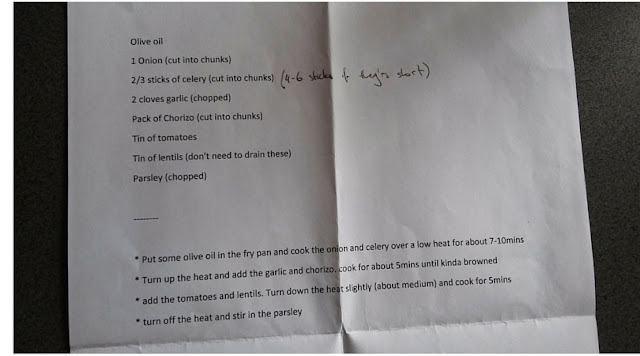 Olive oil
1 Onion (cut into chunks)
2/3 sticks of celery (cut into chunks) (4-6 sticks if they're short)
2 cloves garlic (chopped)
Pack of Chorizo (cut into chunks)
Tin of tomatoes
Tin of lentils (don't need to drain these)
Parsley (chopped)
--------
* Put some olive oil in the fry pan and cook the onion and celery over a low heat for about 7-10mins
* Turn up the heat and add the garlic and chorizo. cook for about 5mins until kinda browned
* add the tomatoes and lentils. Turn down the heat slightly (about medium) and cook for 5mins
* turn off the heat and stir in the parsley